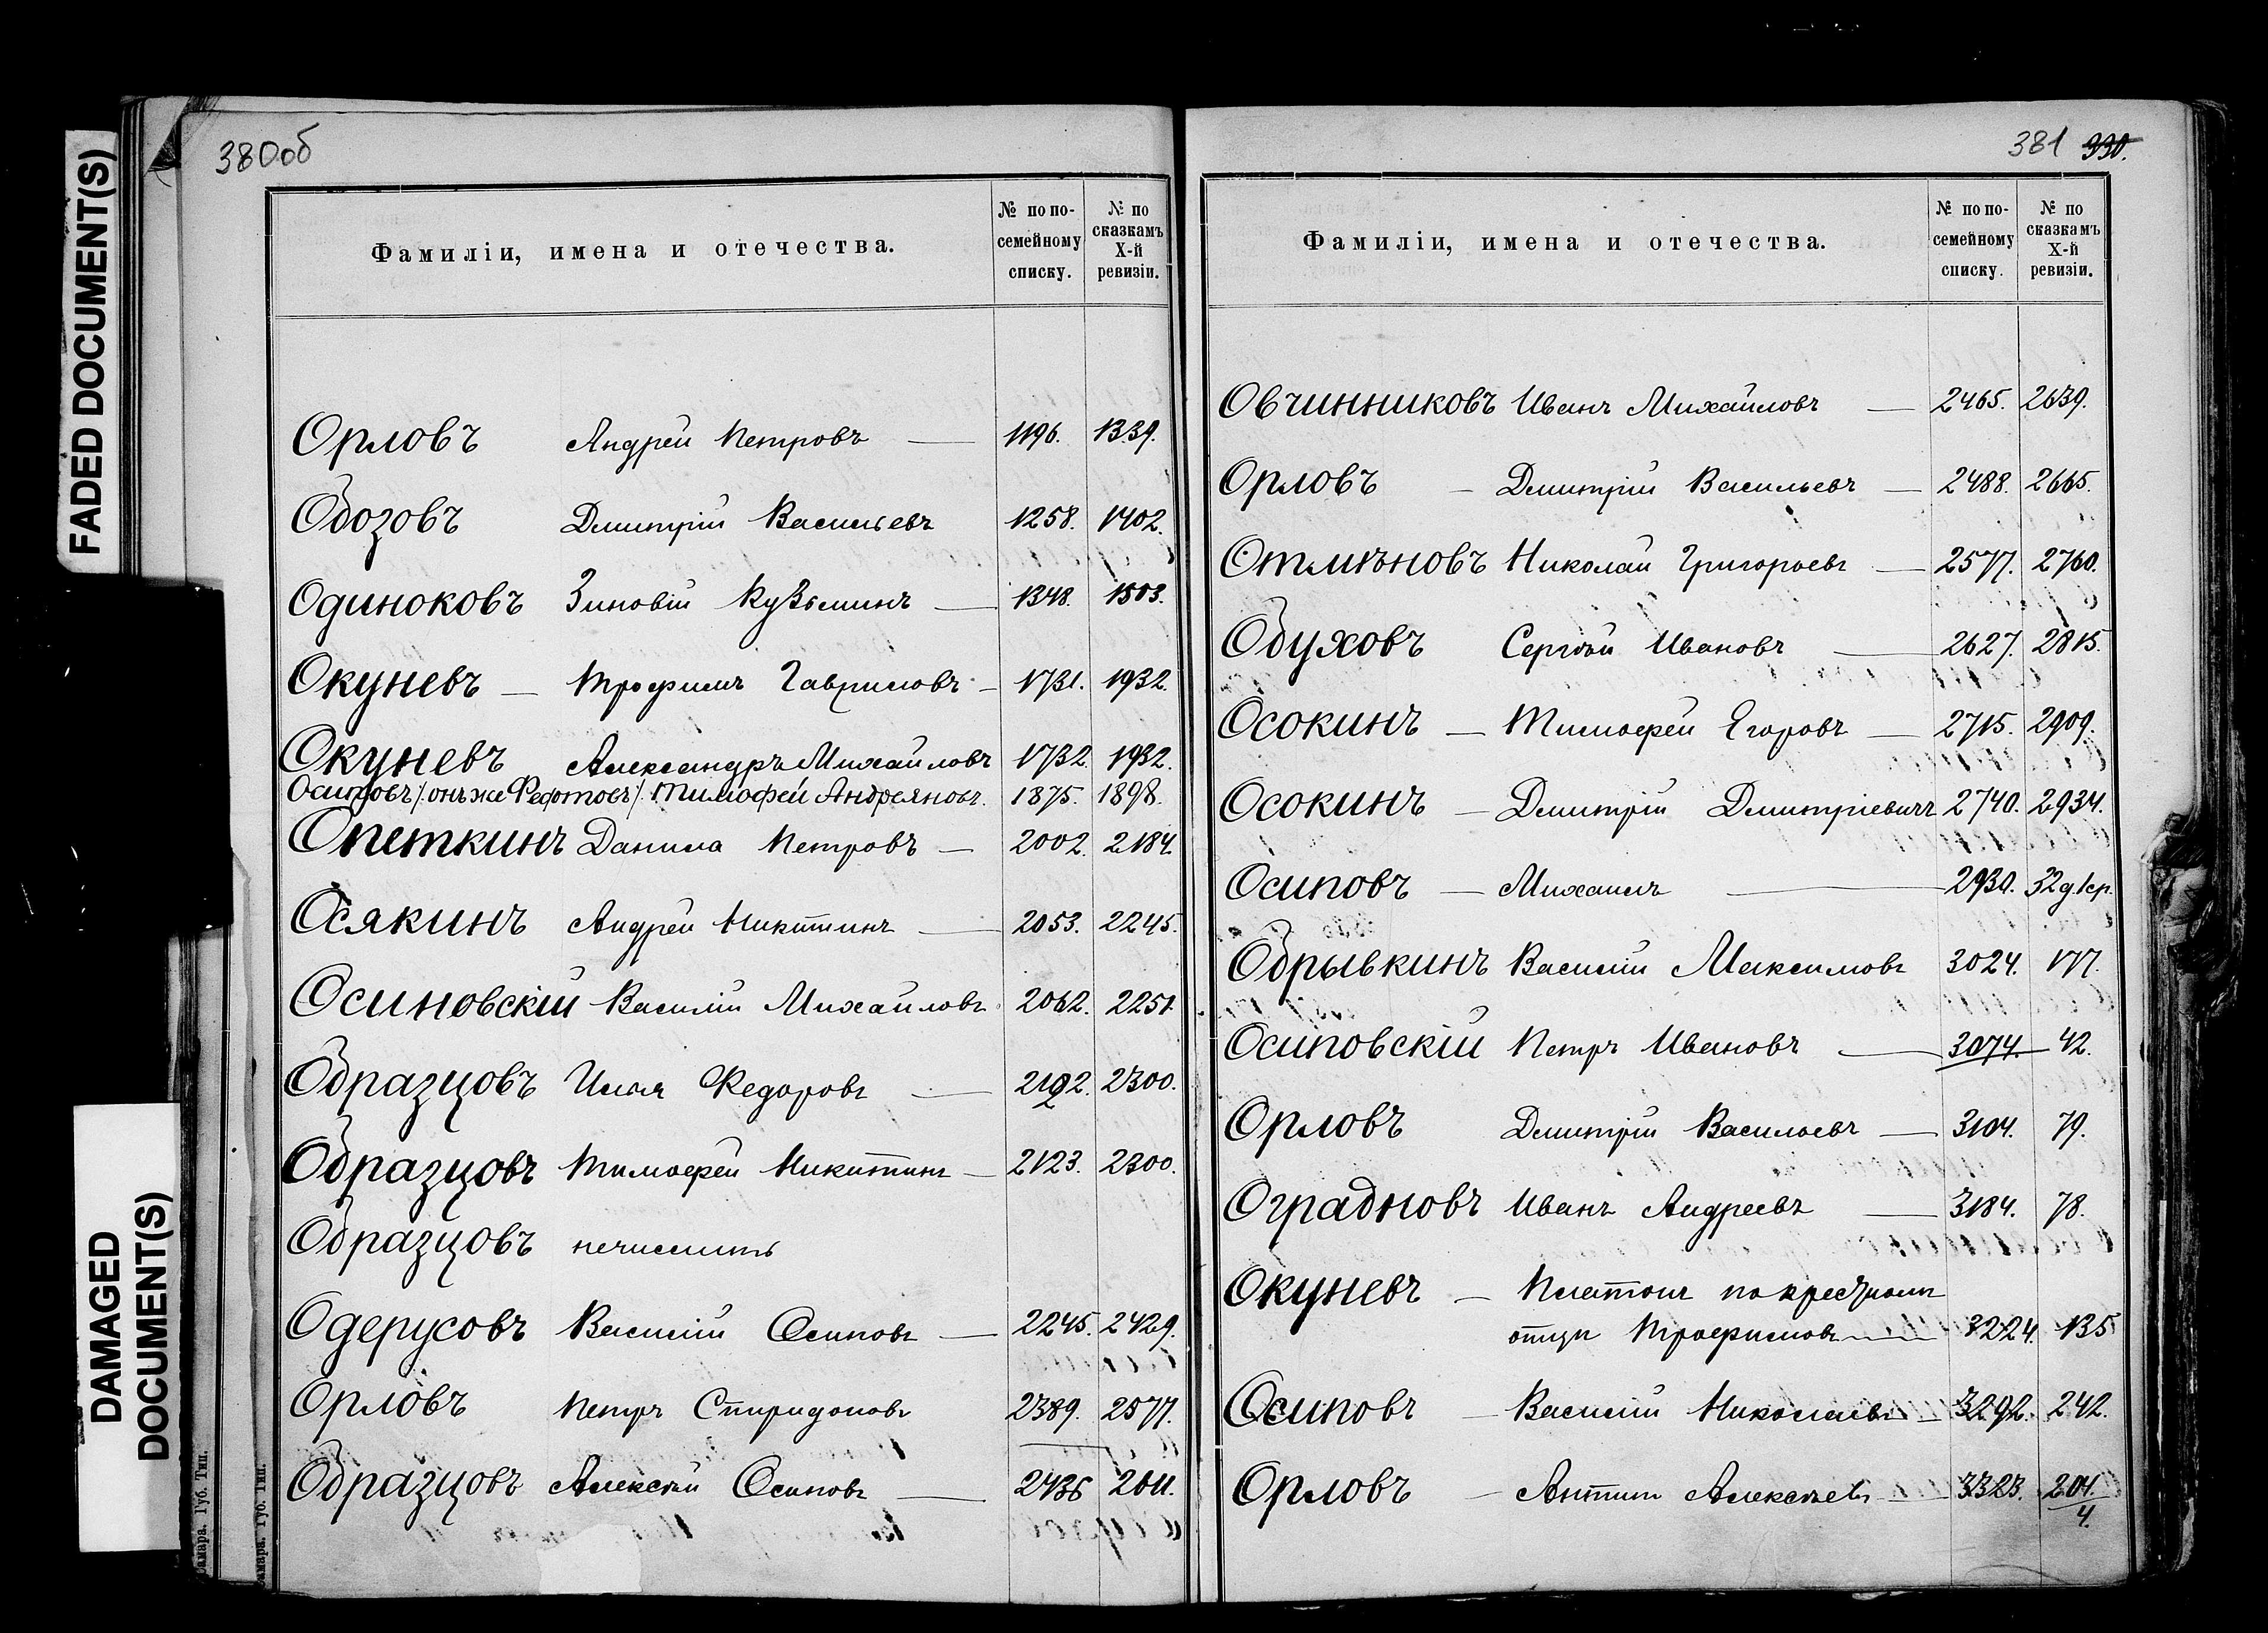 FADED DOCUMENT(S)
DAMAGED
DOCUMENT(S)
380об
Фамиліи, имена и отечества. № по по-семейному списку. № по сказкамъ X-й ревизіи.
Орловъ Андрей Петровъ — 1196. 1339.
Обозовъ Дмитрій Васильевъ 1258. 1402.
Одиноковъ Зиновій Кузьминъ — 1348. 1503.
Окуневъ — Трофимъ Гавриловъ — 1731. 1932.
Окуневъ Александръ Михайловъ 1732. 1932.
Осиповъ /: онъ же Федотовъ /: Тимофей Андреяновъ. 1875. 1898.
Опеткинъ Данила Петровъ — 2002. 2184.
Осякинъ Андрей Никитинъ — 2053. 2245.
Осиновскій Василій Михайловъ 2062. 2251.
Образцовъ Илья Федоровъ — 2192. 2300.
2
Образцовъ Тимофей Никитинъ — 2123. 2300.
Образцовъ нечислить
Одерусовъ Василій Осиповъ — 2245. 2429.
Орловъ Петръ Спиридоновъ 2389. 2577.
Образцовъ Алексѣй Осиповъ — 2436 2611.
амара. Губ. Тип.
амара. Губ. Тип.
381 330.
Фамиліи, имена и отечества. № по по-семейному списку. № по сказкамъ X-й ревизіи.
Овчинниковъ Иванъ Михайловъ — 2465. 2639.
Орловъ — Дмитрій Васильевъ — 2488. 2665.
Отмѣновъ Николай Григорьевъ — 2577. 2760.
Обуховъ Сергѣй Ивановъ — 2627. 2815.
Осокинъ — Тимофей Егоровъ — 2715. 2909.
Осокинъ — Дмитрій Дмитріевичъ 2740. 2934.
Осиповъ — Михаилъ — 2930. 32 д. кр.
Обрывкинъ Василій Максимовъ 3024. 177.
Осиповскій Петръ Ивановъ — 3074. — 42.
Орловъ Дмитрій Васильевъ — 3104. 79.
Оградновъ Иванъ Андреевъ — 3184. 78.
Окуневъ — Платонъ по крестному
отцу Трофимовъ — 3224. 135
Осиповъ — Василій Николаевъ — 3292. 242.
Орловъ — Антипъ Алексѣевъ — 3323. 204.
4.